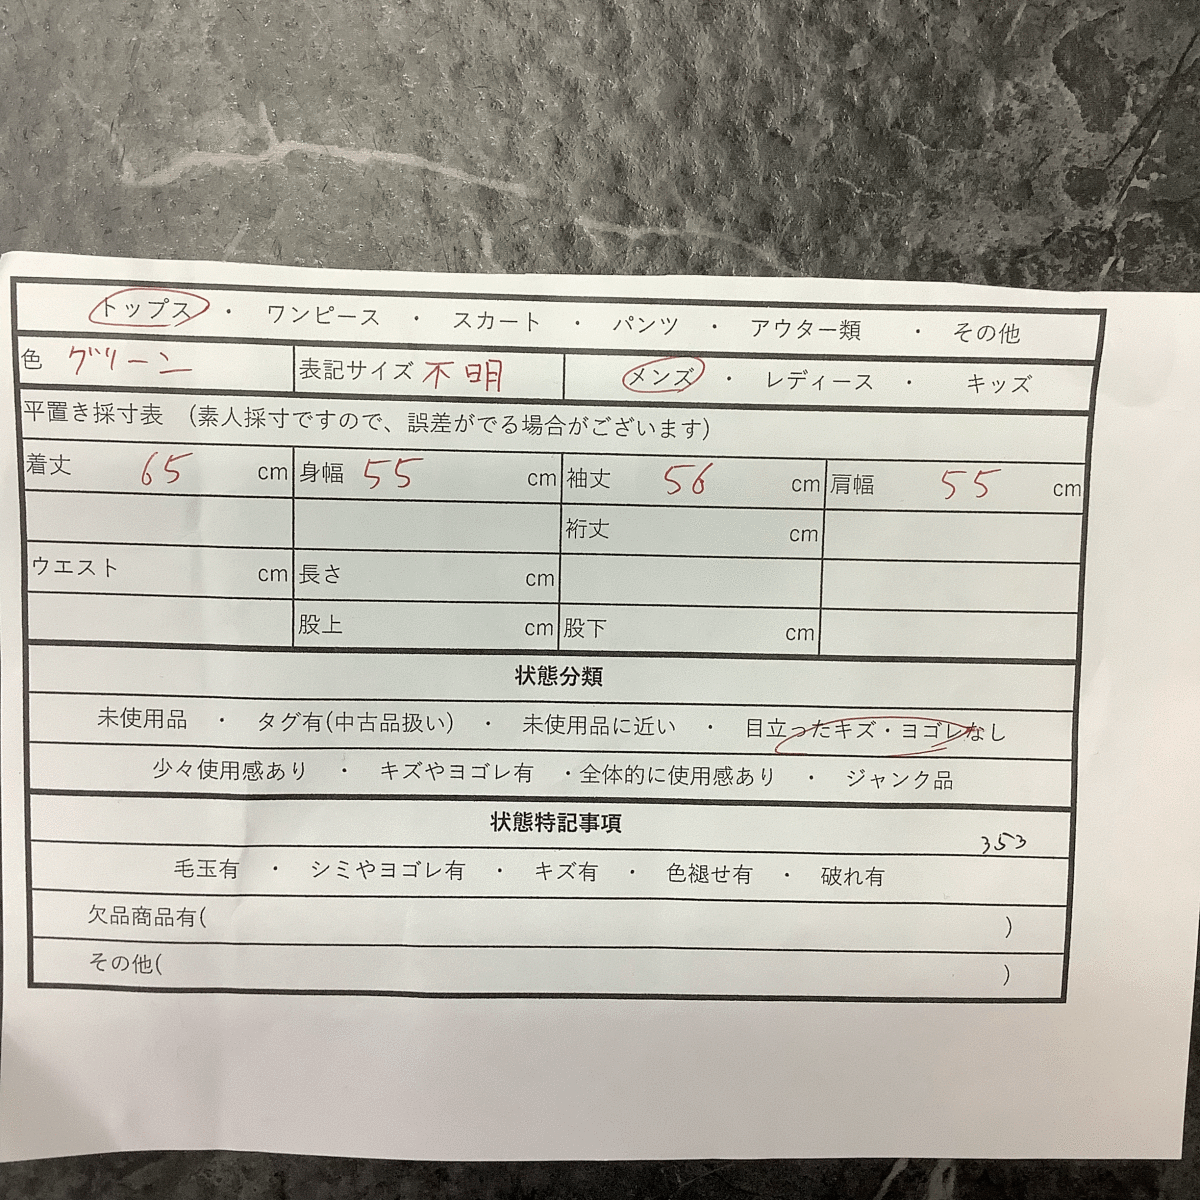 トップス ・ ワンピース ・ スカート ・ パンツ ・ アウター類 ・ その他
色 グリーン 表記サイズ 不明 メンズ ・ レディース ・ キッズ
平置き採寸表 (素人採寸ですので、誤差がでる場合がございます)
着丈 65 cm 身幅 55 cm 袖丈 56 cm 肩幅 55 cm
裄丈 cm
ウエスト cm 長さ cm
股上 cm 股下 cm
状態分類
未使用品 ・ タグ有(中古品扱い) ・ 未使用品に近い ・ 目立ったキズ・ヨゴレなし
少々使用感あり ・ キズやヨゴレ有 ・全体的に使用感あり ・ ジャンク品
状態特記事項
353
毛玉有 ・ シミやヨゴレ有 ・ キズ有 ・ 色褪せ有 ・ 破れ有
欠品商品有( )
その他( )